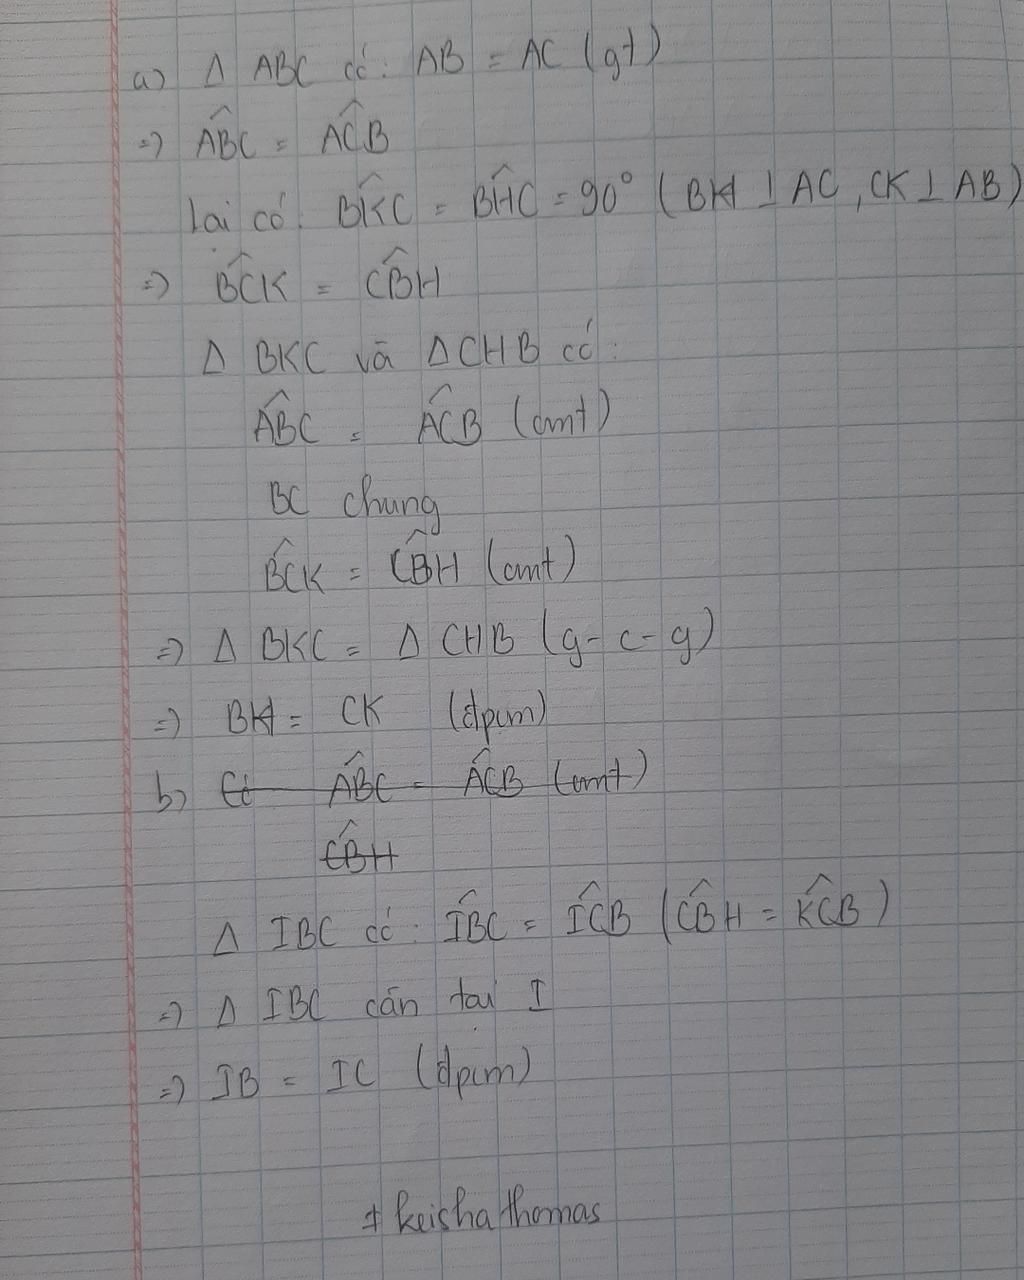 a) Δ ABC có: AB = AC (gt)
=) ABC^ = ACB^
Lại có: BKC^ = BHC^ = 90° (BH ⊥ AC, CK ⊥ AB)
=) BCK^ = CBH^
Δ BKC và Δ CHB có:
ABC^ = ACB^ (cmt)
BC chung
BCK^ = CBH^ (cmt)
=) Δ BKC = Δ CHB (g-c-g)
=) BH = CK (đpcm)
b) Có ABC^ = ACB^ (cmt)
CBH^
Δ IBC có: IBC^ = ICB^ (CBH^ = KCB^)
=) Δ IBC cân tại I
=) IB = IC (đpcm)
keisha thomas